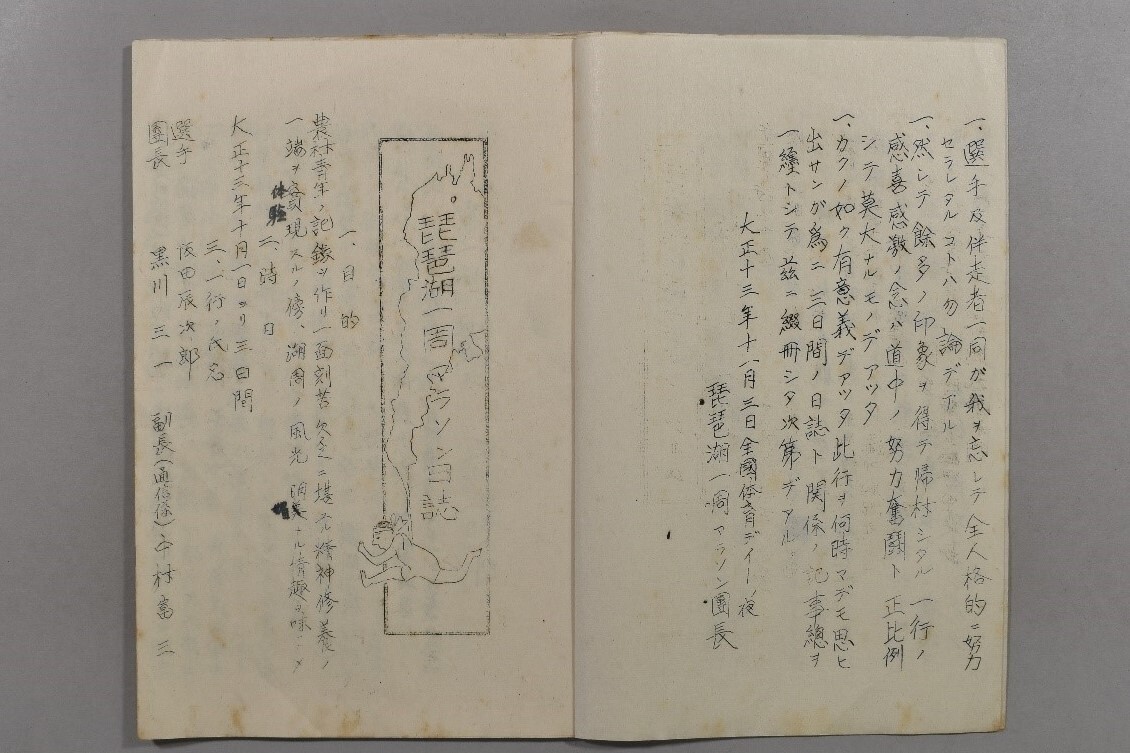 一、選手及伴走者一同が我ヲ忘レテ全人格的ニ努力
セラレタルコトハ勿論デアル
一、然シテ餘多ノ印象ヲ得テ帰村シタル一行ノ
感喜感激ノ念ハ道中ノ努力奮鬪ト正比例
シテ莫大ナルモノデアツタ
一、カクノ如ク有意義デアツタ此行ヲ何時マデモ思ヒ
出サンが爲ニ三日間ノ日誌ト関係ノ記事總ヲ
一纒トシテ茲ニ綴冊シタ次第デアル。
大正十三年十一月三日全國体育デイーノ夜
琵琶湖一周マラソン團長
琵琶湖一周マラソン日誌
一、目的
農村青年ノ記録ヲ作リ一面刻苦欠乏ニ堪エル精神修養ノ
一端ヲ実現スルノ傍、湖周ノ風光明美ナル情趣ヲ味ハメ
体驗
二、時日
大正十三年十月一日ヨリ三日間
三、一行ノ氏名
選手 阪田辰次郎
團長 黒川三一 副長(通信係)中村富三